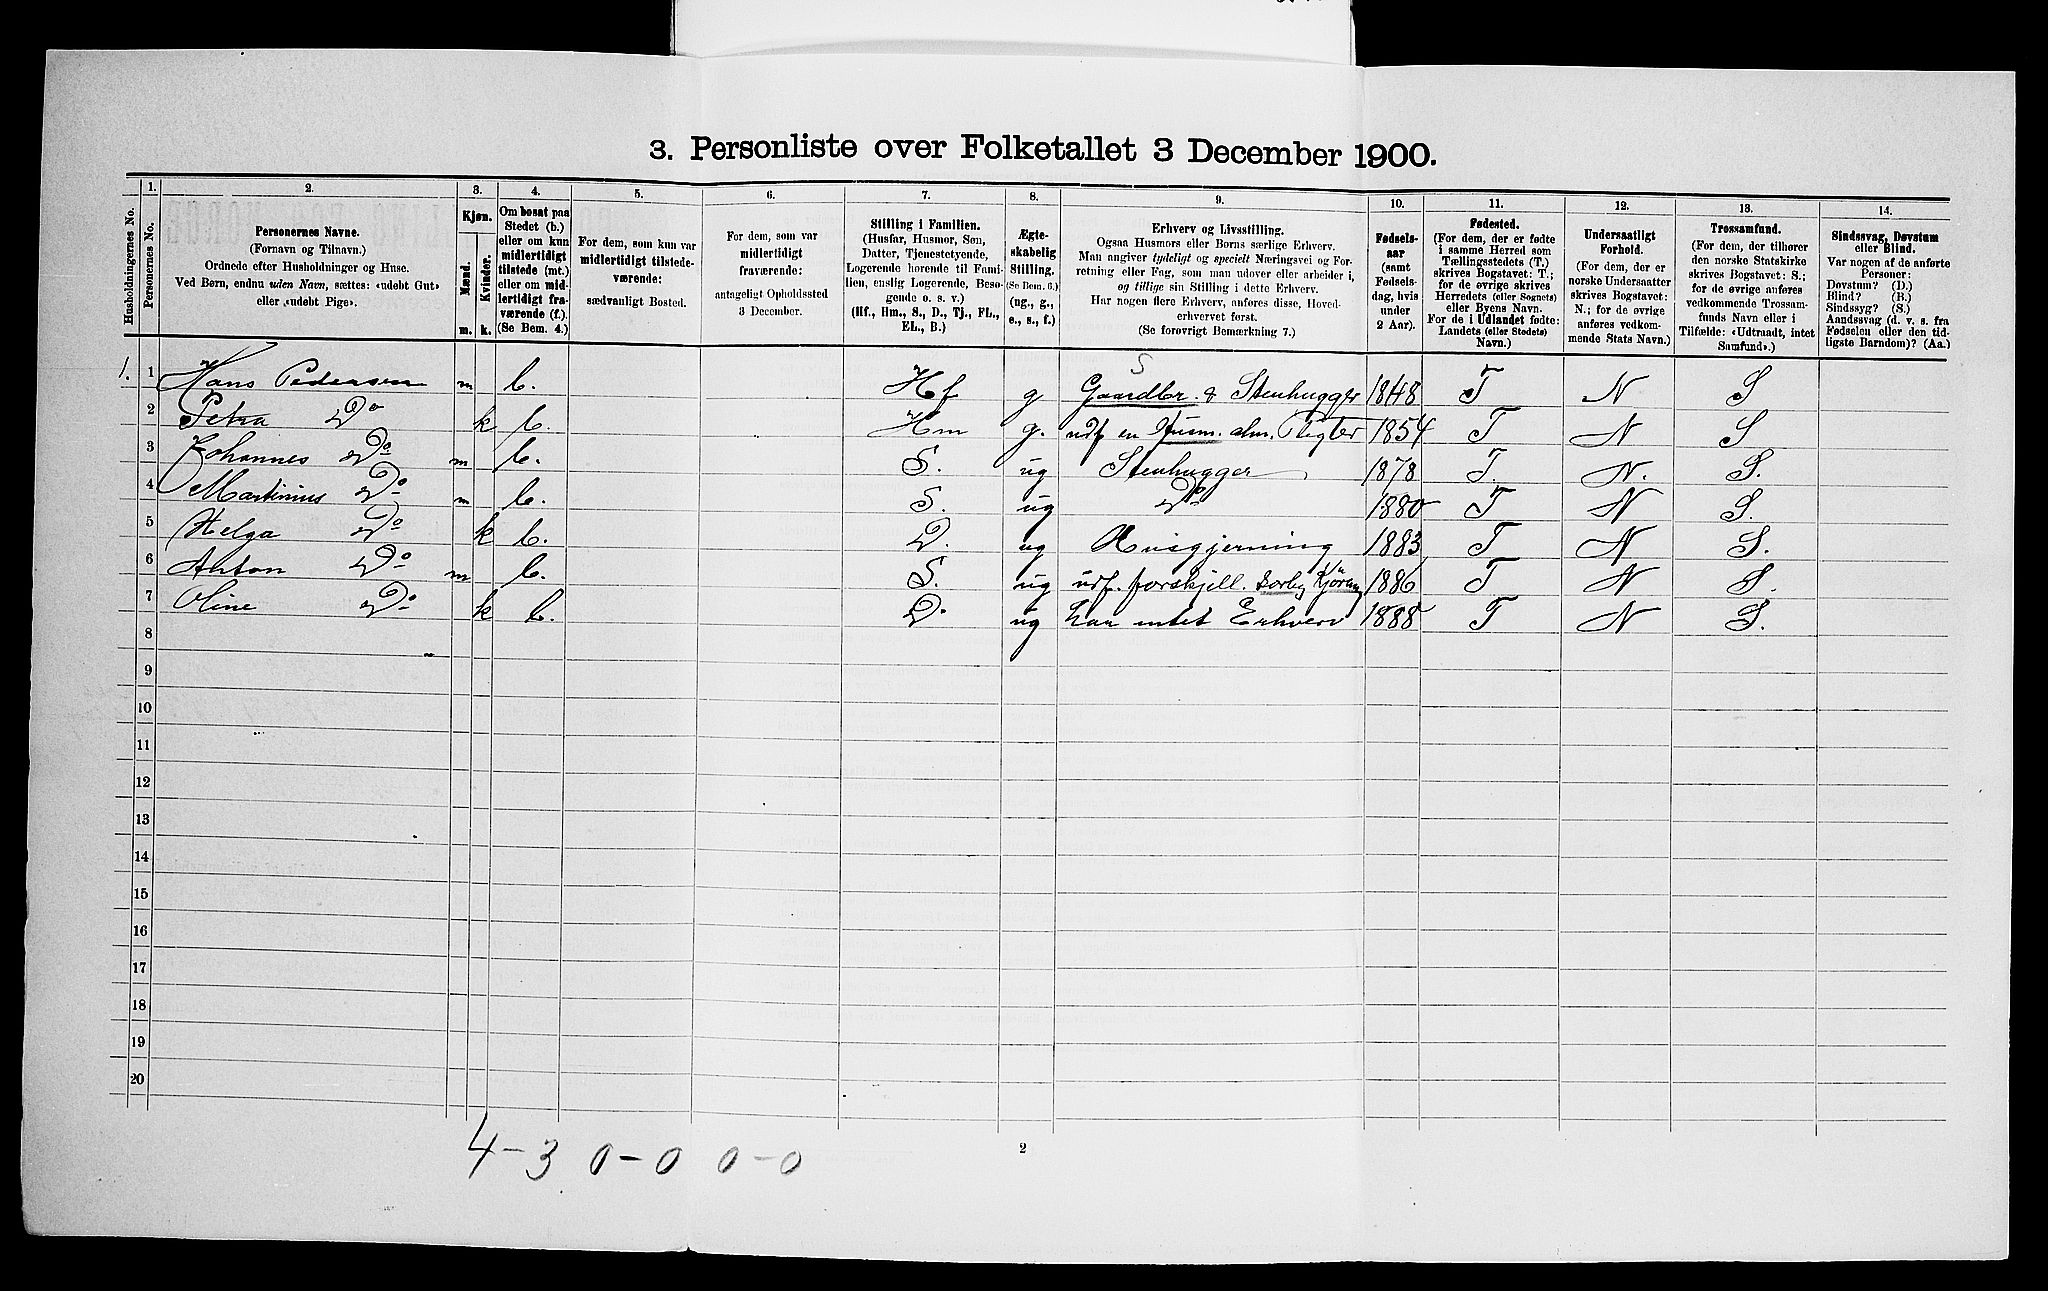 3. Personliste over Folketallet 3 December 1900.
Husholdningernes No.
1. Personernes No.
2.
Personernes Navne.
(Fornavn og Tilnavn.)
Ordnede efter Husholdninger og Huse.
Ved Børn, endnu uden Navn, sættes: «udøbt Gut»
eller «udøbt Pige».
3.
Kjøn.
Mænd.
Kvinder.
m. k.
4.
Om bosat paa
Stedet (b.)
eller om kun
midlertidigt
tilstede (mt.)
eller om mid-
lertidigt fra-
værende (f.).
(Se Bem. 4.)
5.
For dem, som kun var
midlertidigt tilstede-
værende:
sædvanligt Bosted.
6.
For dem, som var
midlertidigt
fraværende:
antageligt Opholdssted
3 December.
7.
Stilling i Familien.
(Husfar, Husmor, Søn,
Datter, Tjenestetyende,
Logerende hørende til Fami-
lien, enslig Logerende, Besø-
gende o. s. v.)
(Hf., Hm., S., D., Tj., FL.,
EL., B.)
8.
Ægte-
skabelig
Stilling.
(Se Bem. 6.)
(ug., g.,
e., s., f.)
9.
Erhverv og Livsstilling.
Ogsaa Husmors eller Børns særlige Erhverv.
Man angiver tydeligt og specielt Næringsvei og For-
retning eller Fag, som man udøver eller arbeider i,
og tillige sin Stilling i dette Erhverv.
Har nogen flere Erhverv, anføres disse, Hoved-
erhvervet først.
(Se forøvrigt Bemærkning 7.)
10.
Fødsels-
aar
(samt
Fødsels-
dag, hvis
under
2 Aar).
11.
Fødested.
(For dem, der er fødte
i samme Herred som
Tællingsstedets (T.)
skrives Bogstavet: T;
for de øvrige skrives
Herredets (eller Sognets)
eller Byens Navn.
For de i Udlandet fødte:
Landets (eller Stedets)
Navn.)
12.
Undersaatligt
Forhold.
(For dem, der er
norske Undersaatter
skrives Bogstavet:
N.; for de øvrige
anføres vedkom-
mende Stats Navn.)
13.
Trossamfund.
(For dem, der tilhører
den norske Statskirke
skrives Bogstavet: S.;
for de øvrige anføres
vedkommende Trossam-
funds Navn eller i
Tilfælde: «Udtraadt, intet
Samfund».)
14.
Sindssvag, Døvstum
eller Blind.
Var nogen af de anførte
Personer:
Døvstum? (D.)
Blind? (B.)
Sindssyg? (S.)
Aandssvag (d. v. s. fra
Fødselen eller den tid-
ligste Barndom)? (Aa.)
S
1. 1 Hans Pedersen m b. Hf g Gaardbr. & Stenhugger 1848 T N S
2 Petra Do k b. Hm g. udf en Husm. alm. Pligter 1854 T N S
3 Johannes Do m b. S. ug Stenhugger 1878 T. N. S.
4 Martinius Do m b. S. ug Do 1880 T N S.
5 Helga Do k b. D. ug Husgjerning 1883 T N S.
6 Anton Do m b. S. ug udf. forskjell. 1886 T N S.
7 Oline Do k b. D. ug har intet Erhverv 1888 T N S.
8
9
10
11
12
13
14
15
16
17
18
19
20
4-3 0-0 0-0
2